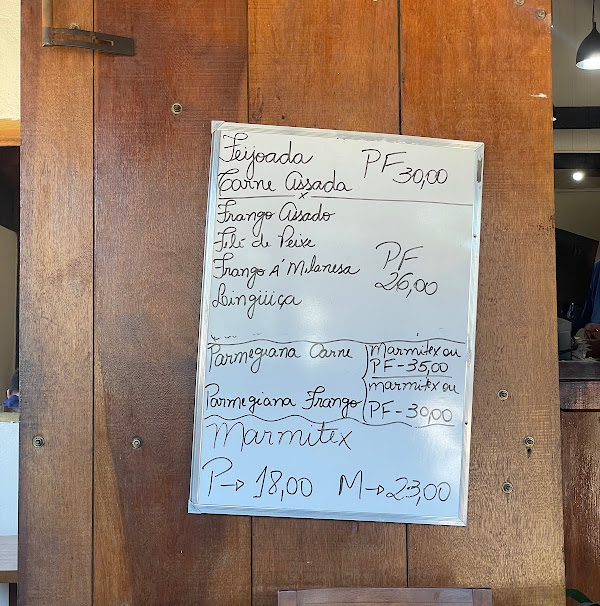 Feijoada
Carne Assada
PF 30,00
Frango Assado
Filé de Peixe
Frango A' Milanesa
Lingüiça
PF
26,00
Parmegiana Carne
Marmitex ou
PF - 35,00
Parmegiana Frango
marmitex ou
PF - 30,00
Marmitex
P→ 18,00 M→ 23,00